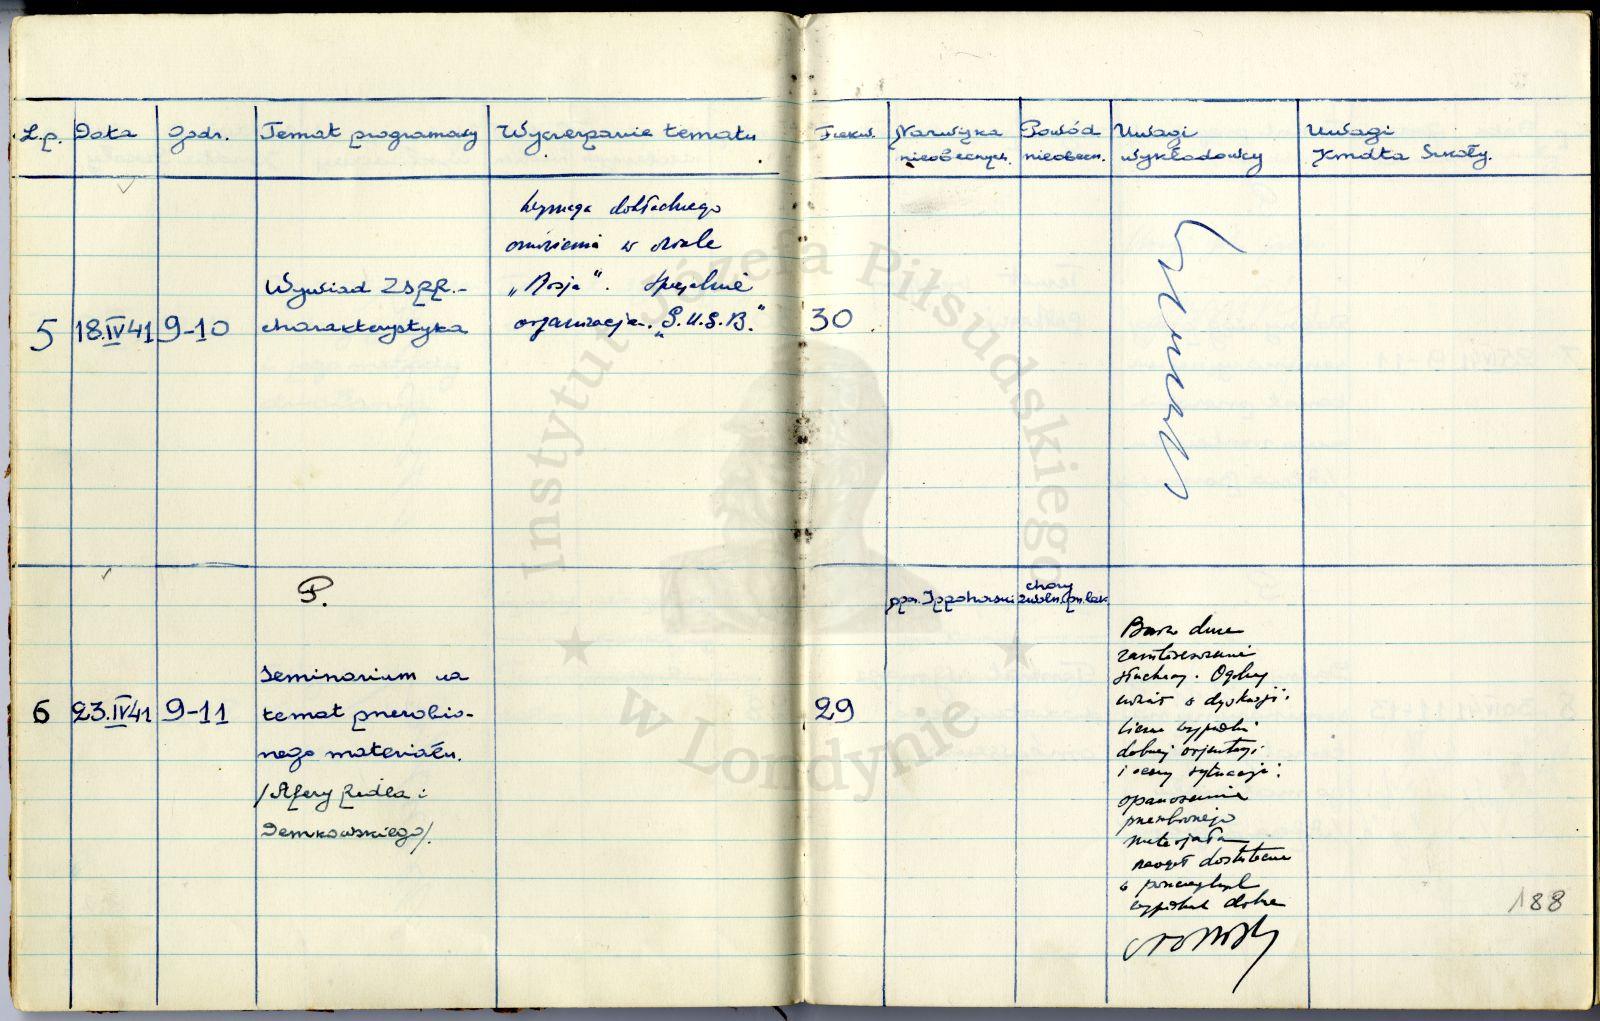 L.p. Data Godz. Temat programowy Wyczerpanie tematu Frekw. Nazwiska nieobecnych. Powód nieobecn. Uwagi wykładowcy Uwagi Kmdta Szkoły.
5 18.IV41 9-10
Wywiad ZSRR.-
charakterystyka
Wymaga dokładnego
omówienia w dziale
„Rosja". Specjalnie
organizacja „G.U.G.B."
30
6 23.IV41 9-11
P.
Seminarium na
temat przerobio-
nego materiału.
/Afery Redla i
Demkowskiego/.
29
ppor.
chory
zwoln. przez lek.
Bardzo duże
zainteresowanie
słuchaczy. Ogólny
udział w dyskusji:
dobrej orjentacji
i oceny sytuacji:
opanowanie
przerobionego
materjału
naogół dostateczne
w poszczególnych
wypadkach dobre
188
Instytut Józefa Piłsudskiego
w Londynie